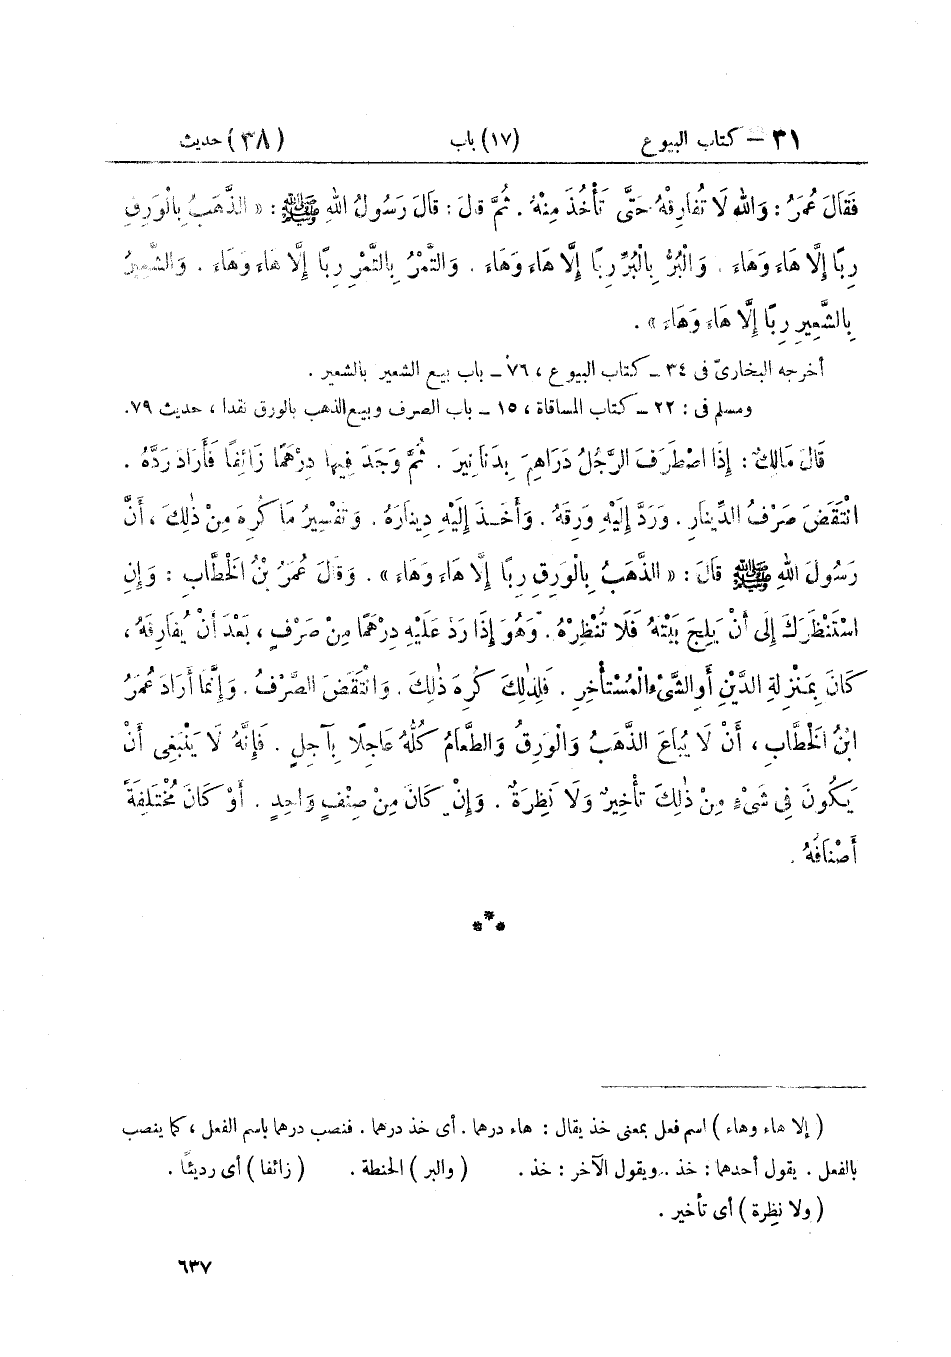 ٣١ – كتاب البيوع (١٧) باب (٣٨) حديث
فَقَالَ عُمَرُ : وَاللهِ لَا تُفَارِقْهُ حَتَّى تَأْخُذَ مِنْهُ . ثُمَّ قَالَ : قَالَ رَسُولُ اللهِ ﷺ : « الذَّهَبُ بِالْوَرِقِ
رِبًا إِلَّا هَاءَ وَهَاءَ . وَالْبُرُّ بِالْبُرِّ رِبًا إِلَّا هَاءَ وَهَاءَ . وَالتَّمْرُ بِالتَّمْرِ رِبًا إِلَّا هَاءَ وَهَاءَ . وَالشَّعِيرُ
بِالشَّعِيرِ رِبًا إِلَّا هَاءَ وَهَاءَ » .
أخرجه البخارىّ فى ٣٤ – كتاب البيوع ، ٧٦ – باب بيع الشعير بالشعير .
ومسلم فى : ٢٢ – كتاب المساقاة ، ١٥ – باب الصرف وبيع الذهب بالورق نقدا ، حديث ٧٩.
قَالَ مَالِكٌ : إِذَا اصْطَرَفَ الرَّجُلُ دَرَاهِمَ بِدَنَانِيرَ . ثُمَّ وَجَدَ فِيهَا دِرْهَمًا زَائِفًا فَأَرَادَ رَدَّهُ .
انْتَقَضَ صَرْفُ الدِّينَارِ . وَرَدَّ إِلَيْهِ وَرِقَهُ . وَأَخَذَ إِلَيْهِ دِينَارَهُ . وَتَفْسِيرُ مَا كُرِهَ مِنْ ذٰلِكَ ، أَنَّ
رَسُولَ اللهِ ﷺ قَالَ : « الذَّهَبُ بِالْوَرِقِ رِبًا إِلَّا هَاءَ وَهَاءَ » . وَقَالَ عُمَرُ بْنُ الْخَطَّابِ : وَإِنِ
اسْتَنْظَرَكَ إِلَى أَنْ يَلِجَ بَيْتَهُ فَلَا تُنْظِرْهُ . وَهُوَ إِذَا رَدَّ عَلَيْهِ دِرْهَمًا مِنْ صَرْفٍ ، بَعْدَ أَنْ يُفَارِقَهُ ،
كَانَ بِمَنْزِلَةِ الدَّيْنِ أَوِ الشَّىْءِ الْمُسْتَأْخِرِ . فَلِذٰلِكَ كُرِهَ ذٰلِكَ . وَانْتَقَضَ الصَّرْفُ . وَإِنَّمَا أَرَادَ عُمَرُ
ابْنُ الْخَطَّابِ ، أَنْ لَا يُبَاعَ الذَّهَبُ وَالْوَرِقُ وَالطَّعَامُ كُلُّهُ عَاجِلًا بِآجِلٍ . فَإِنَّهُ لَا يَنْبَغِى أَنْ
يَكُونَ فِى شَىْءٍ مِنْ ذٰلِكَ تَأْخِيرٌ وَلَا نَظِرَةٌ . وَإِنْ كَانَ مِنْ صِنْفٍ وَاحِدٍ . أَوْ كَانَ مُخْتَلِفَةً
أَصْنَافُهُ .
***
( إلا هاء وهاء ) اسم فعل بمعنى خذ يقال : هاء درهما . أى خذ درهما . فنصب درهما باسم الفعل ، كما ينصب
بالفعل . يقول أحدهما : خذ . ويقول الآخر : خذ . ( والبر ) الحنطة . ( زائفا ) أى رديئًا .
( ولا نظرة ) أى تأخير .
٦٣٧